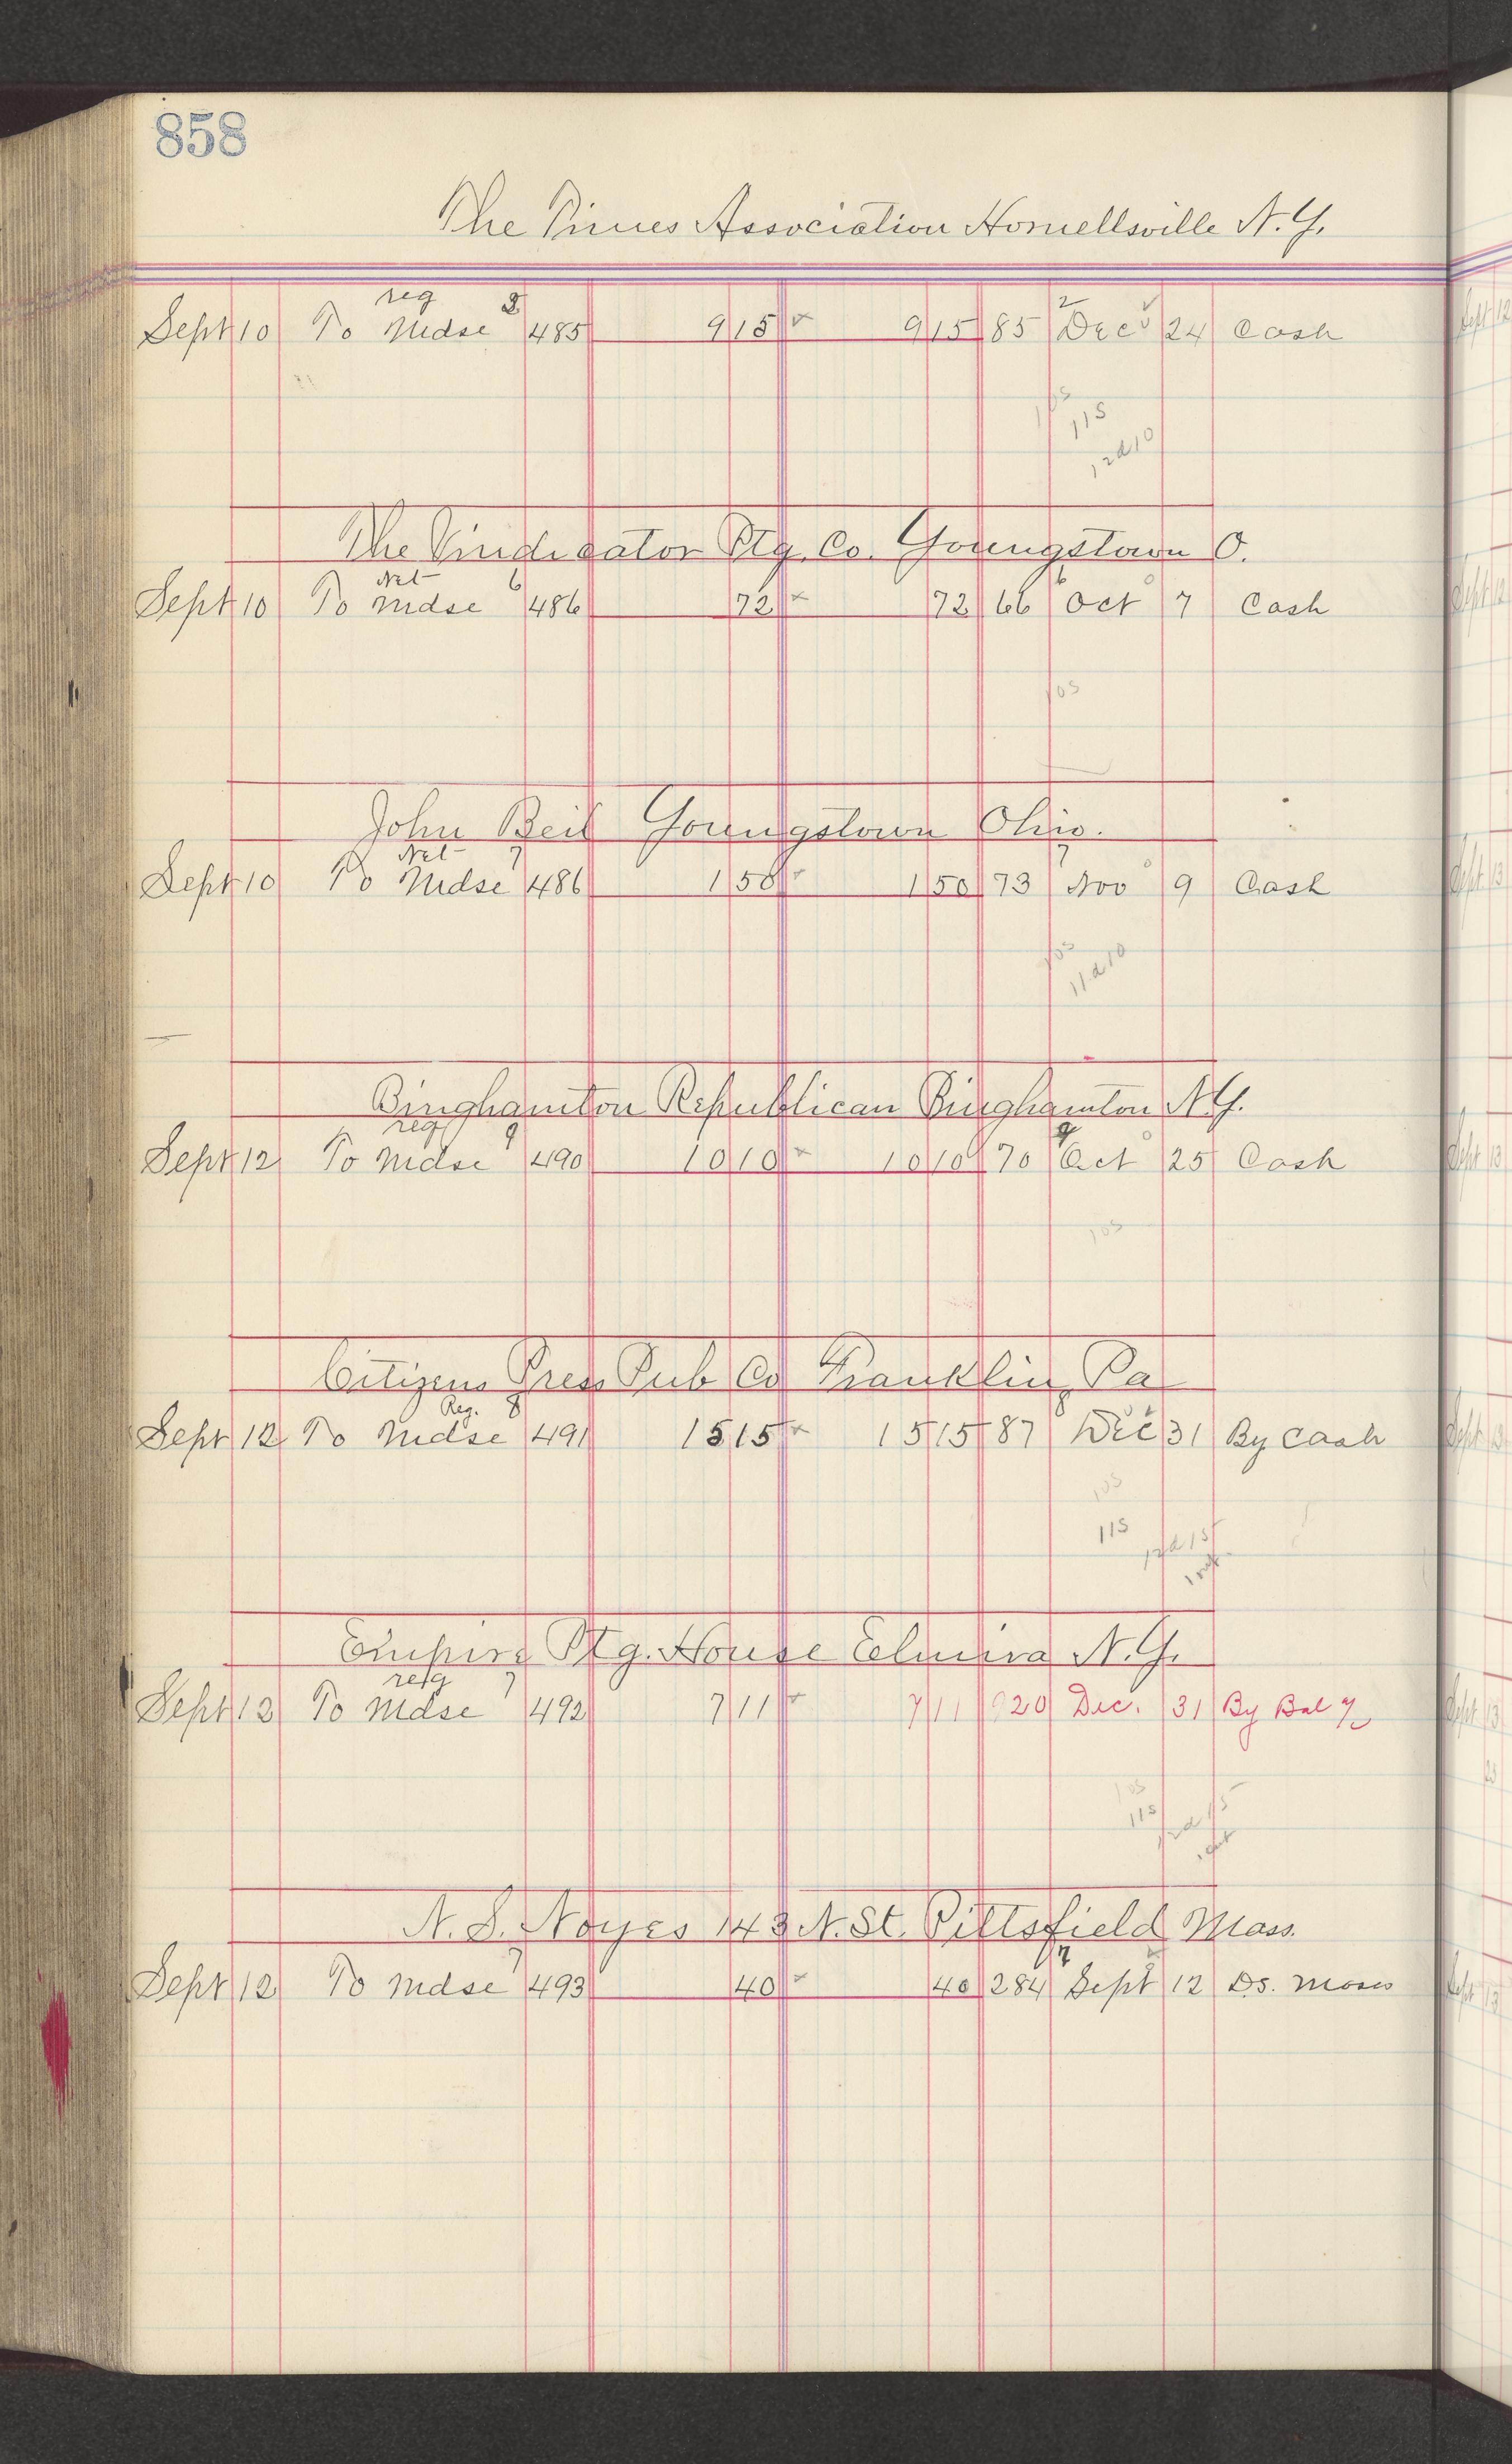 858
The Times Association Hornellsville N.Y.
reg 8 2
Sept 10 To Mdse 485 9 15 9 15 85 Dec 24 Cash
10s
11s
12d10
The Vindicator Ptg. Co. Youngstown O.
Net 6 6
Sept 10 To Mdse 486 72 72 66 Oct 7 Cash
10s
John Beil Youngstown Ohio.
Net 7 7
Sept 10 To Mdse 486 1 50 1 50 73 Nov 9 Cash
10s
11d10
Binghamton Republican Binghamton N.Y.
reg 9 9
Sept 12 To Mdse 490 10 10 10 10 70 Oct 25 Cash
10s
Citizens Press Pub Co Franklin, Pa
Reg. 8 8
Sept 12 To Mdse 491 15 15 15 15 87 Dec 31 By Cash
10s
11s
12d15
Empire Ptg. House Elmira N.Y.
reg 7
Sept 12 To Mdse 492 7 11 7 11 920 Dec. 31 By Bal
10s
11s
12d15
N. S. Noyes 143 N. St. Pittsfield Mass.
7 7
Sept 12 To Mdse 493 40 40 284 Sept 12 Ds. Moses